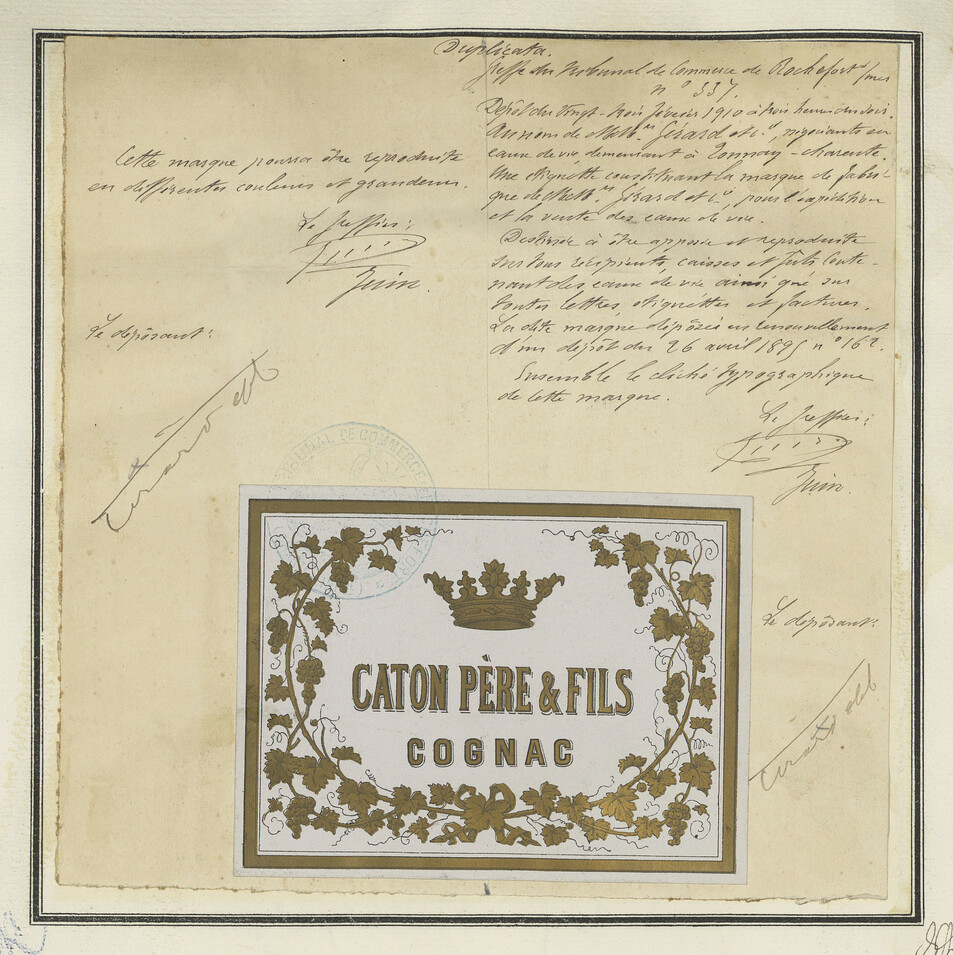 Duplicata.
Greffe du Tribunal de Commerce de Rochefort s/mer
n° 337.
Dépôt du vingt-trois février 1910 à trois heures du soir.
Au nom de Mess.rs Gérard et Cie, négociants en
eaux de vie, demeurant à Tonnay-Charente.
Une étiquette constituant la marque de fabri-
que de Mess.rs Gérard et Cie, pour l'expédition
et la vente des eaux de vie.
Destinée à être apposée et reproduite
sur tous récipients, caisses et fûts conte-
nant des eaux de vie ainsi que sur
toutes lettres, étiquettes et factures.
La dite marque déposée en renouvellement
d'un dépôt du 26 avril 1895 n° 162.
Ensemble le cliché typographique
de cette marque.
Le Greffier:
Cette marque pourra être reproduite
en différentes couleurs et grandeurs.
Le Greffier:
Le déposant:
Le déposant:
TRIBUNAL DE COMMERCE
CATON PÈRE & FILS
COGNAC